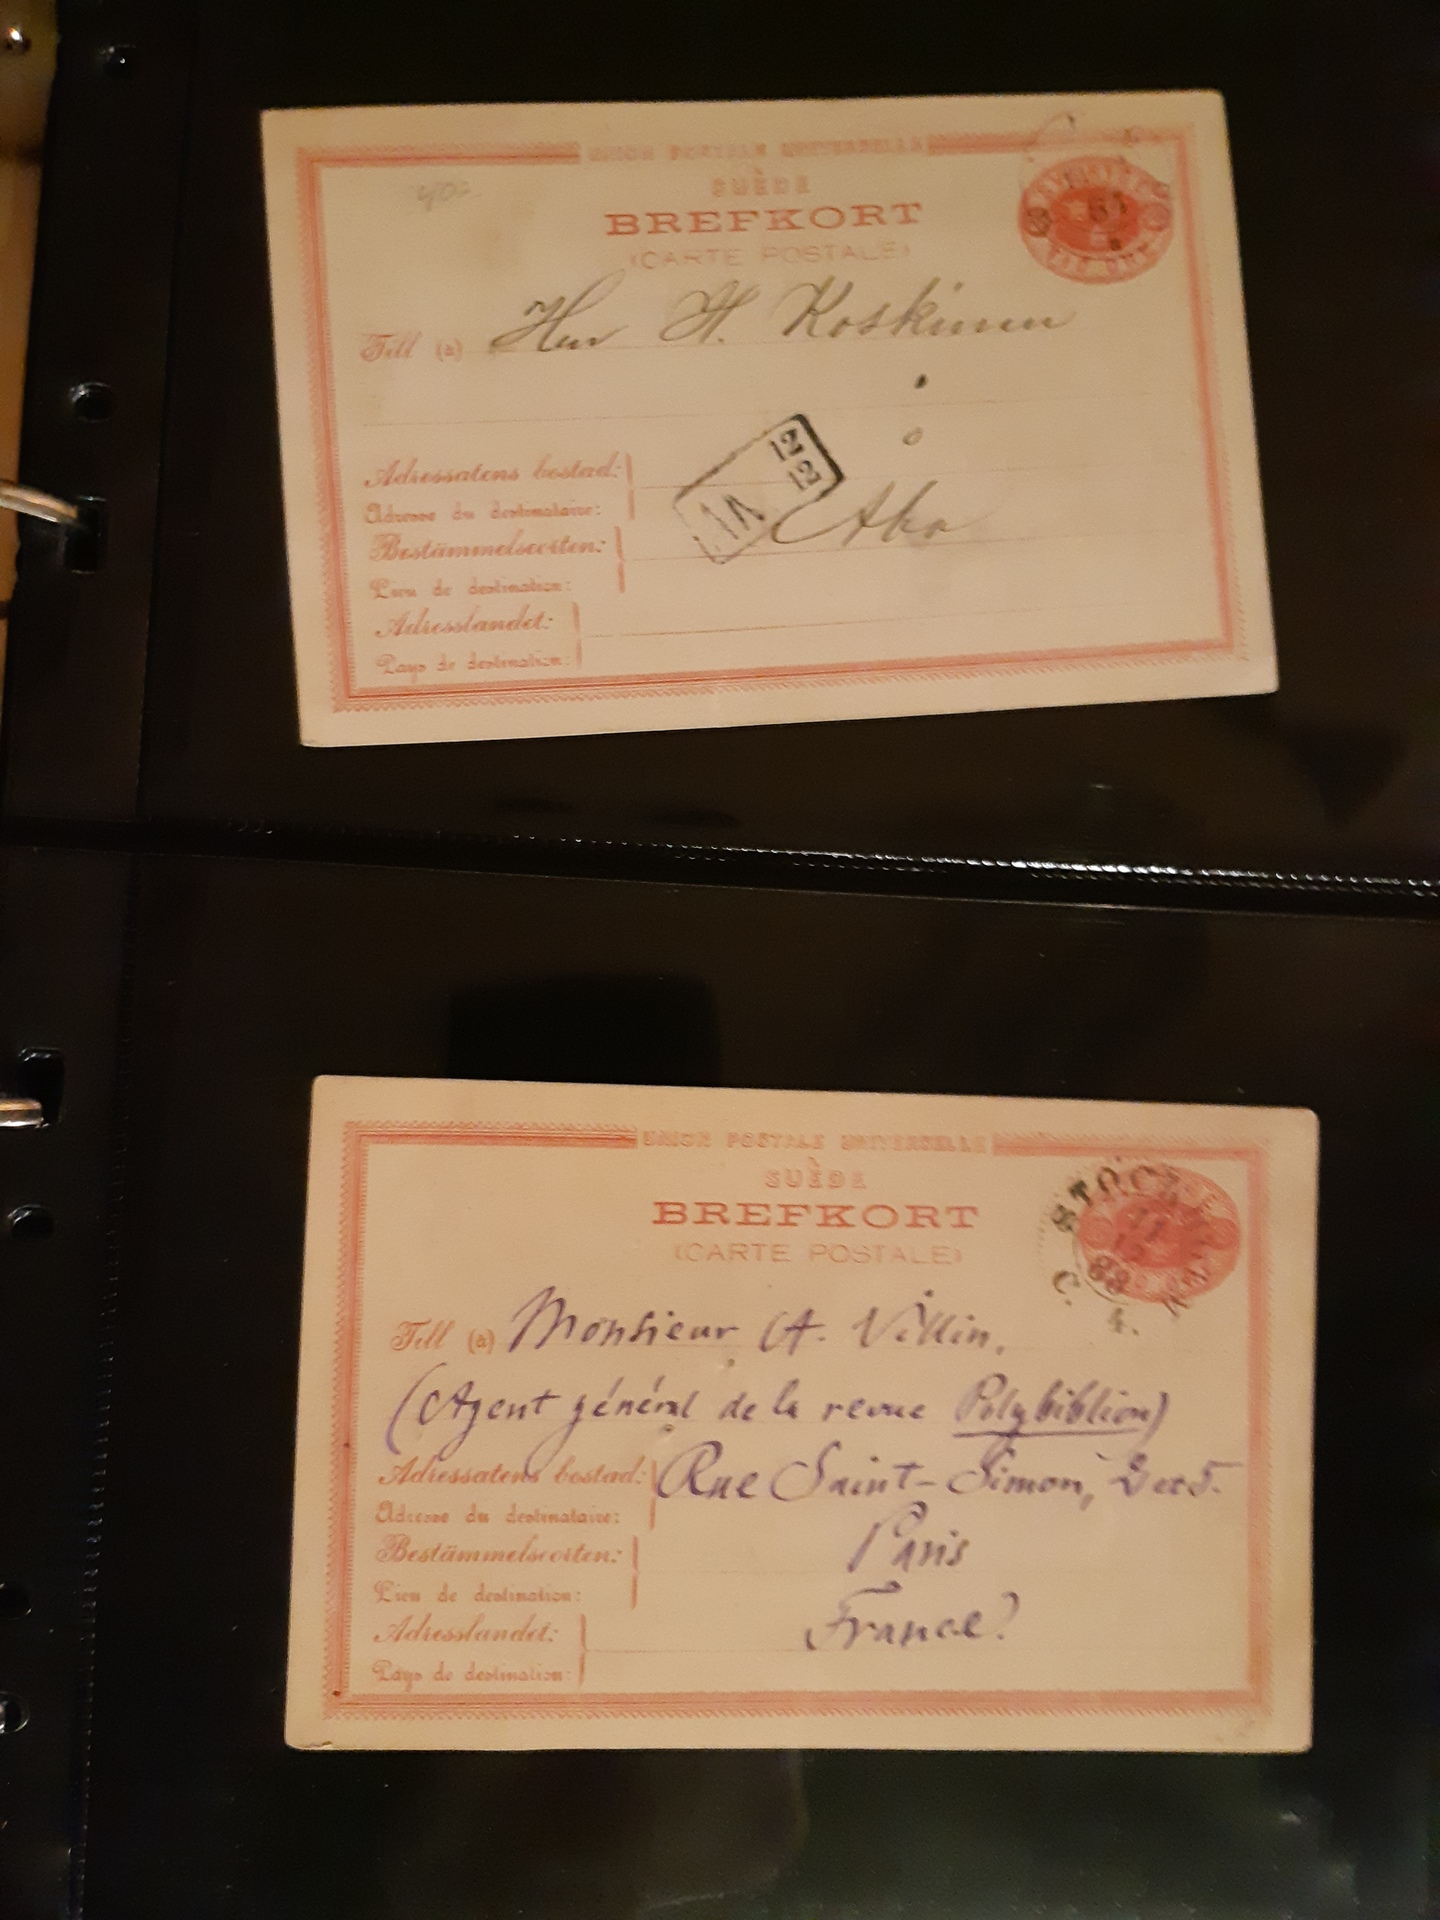 UNION POSTALE UNIVERSELLE
SUÈDE
BREFKORT
(CARTE POSTALE)
85
Till (à) Herr A. Koskinen
Adressatens bostad:
Adresse du destinataire:
12 12
Åbo
Bestämmelseorten:
Lieu de destination:
Adresslandet:
Pays de destination:
UNION POSTALE UNIVERSELLE
SUÈDE
BREFKORT
(CARTE POSTALE)
88
Till (à) Monsieur A. Villin,
(Agent général de la revue Polybiblion)
Adressatens bostad: Rue Saint-Simon, 2 et 5.
Adresse du destinataire:
Bestämmelseorten: Paris
Lieu de destination:
Adresslandet: France
Pays de destination: